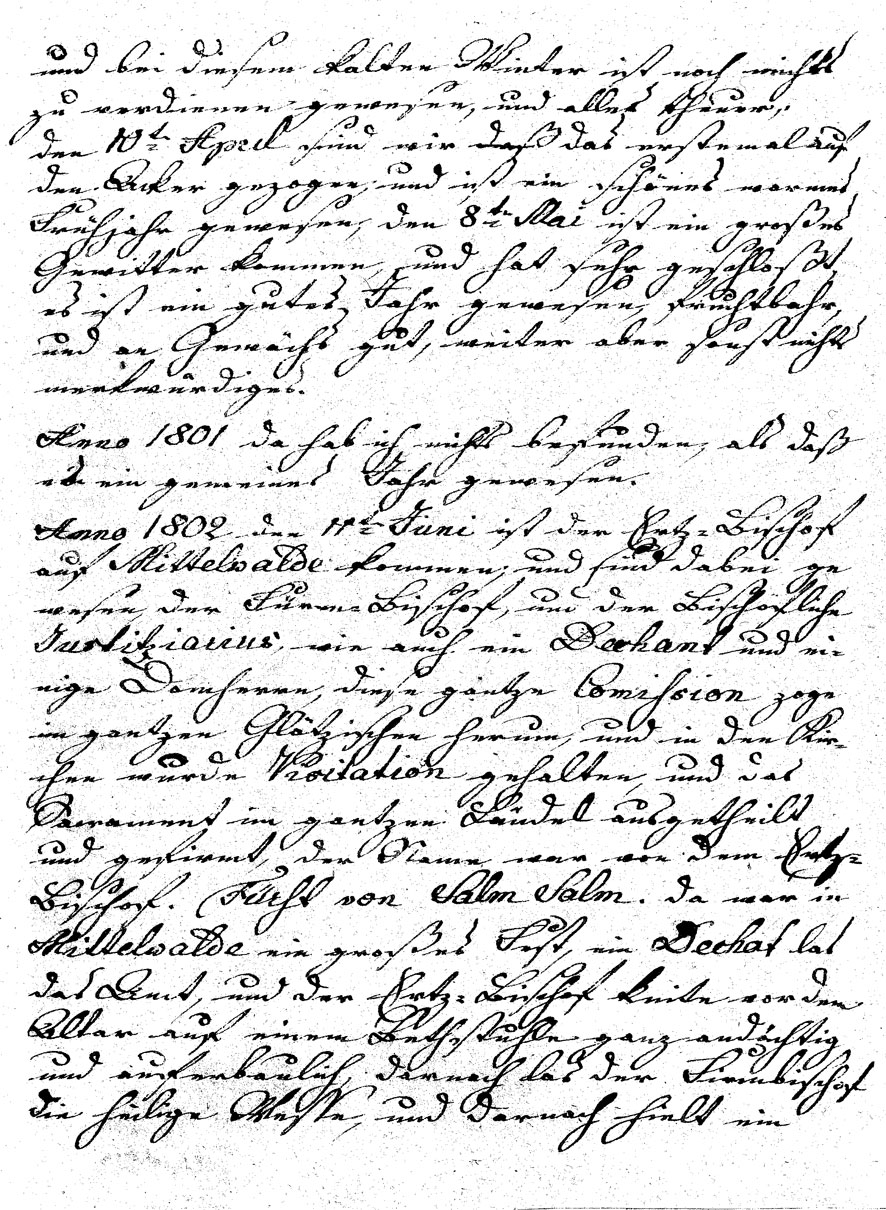 und bei diesem kalten Winter ist noch nichts
zu verdienen gewesen, und alles theuer,
den 10t. April sind wir daß das erstemal auf
den Acker gezogen, und ist ein schönes warmes
Frühjahr gewesen, den 8t. Mai ist ein großes
Gewitter kommen, und hat sehr geschloßt,
es ist ein gutes Jahr gewesen, fruchtbahr,
und an Gewächs gut, weiter aber sonst nichts
merkwürdiges.
Anno 1801 da hab ich nichts befunden, als daß
es ein gemeines Jahr gewesen.
Anno 1802 den 11t. Juni ist der Ertz-Bischof
auf Mittelwalde kommen, und sind dabei ge
wesen, der Bischof, und der Bischöfliche
Justitziarius, wie auch ein Dechant und ei-
nige Domherrn, diese gantze Comission zoge
im gantzen Glätzischen herum, und in den Kir-
chen wurde Visitation gehalten, und das
Sacrament im gantzen Ländel ausgetheilt
und gefirmt, der Name war von dem Ertz-
Bischof. Fürst von Salm Salm. da war in
Mittelwalde ein großes Fest, ein Dechat las
das Amt, und der Ertz-Bischof knite vor dem
Altar auf einem Bethstuhle ganz andächtig
und auferbaulich, darnach las der Firmbischof
die heilige Messe, und darnach hielt ein